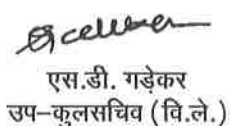 एस.डी. गड़ेकर
उप–कुलसचिव (वि.ले.)